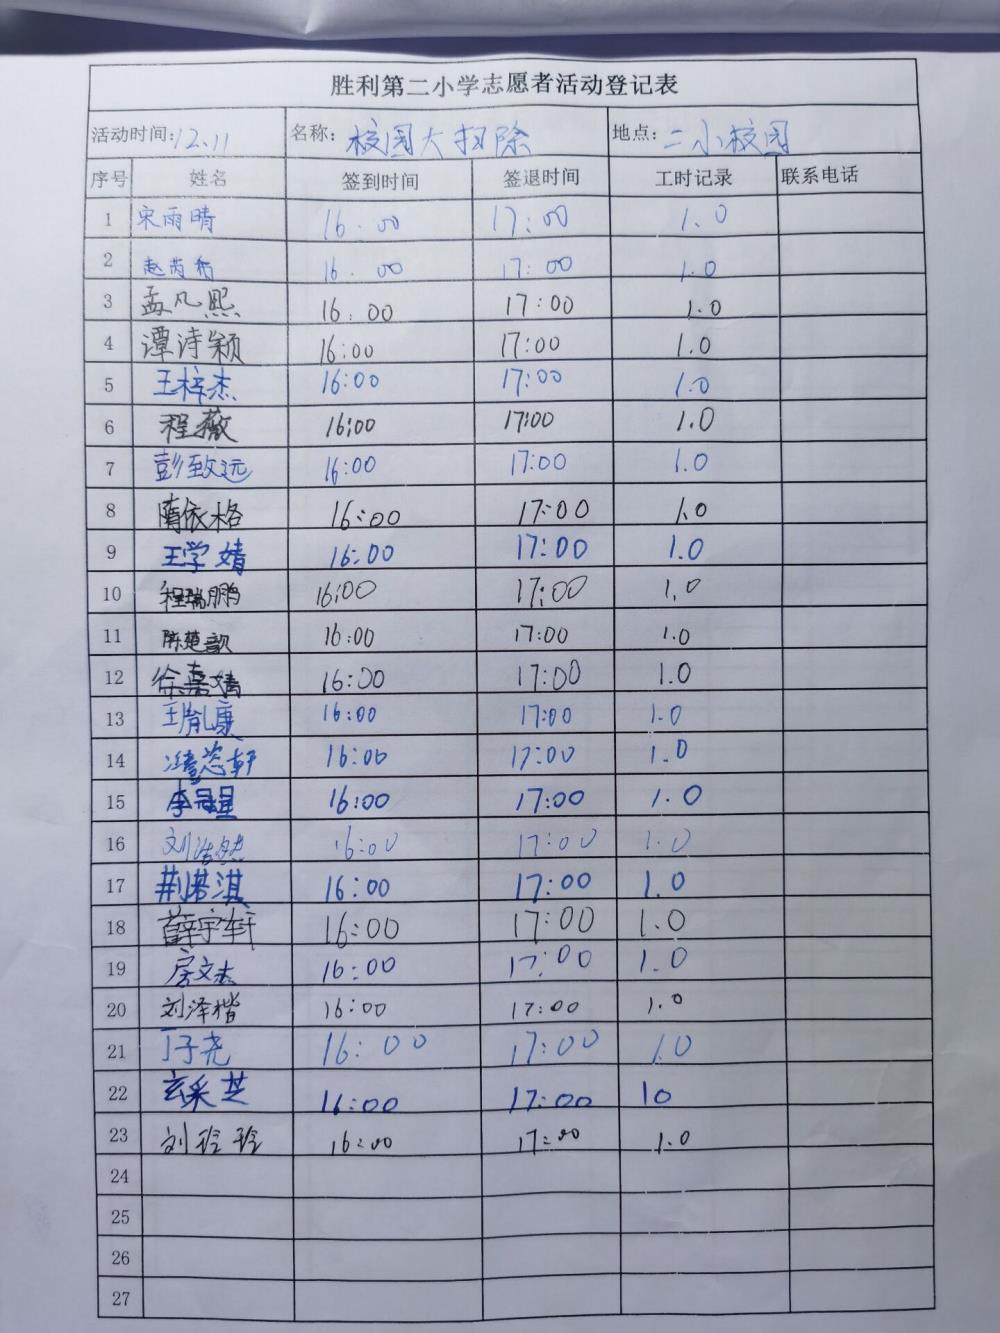 胜利第二小学志愿者活动登记表
活动时间:12.11 名称: 校园大扫除 地点: 二小校园
序号 姓名 签到时间 签退时间 工时记录 联系电话
1 宋雨晴 16:00 17:00 1.0
2 赵芮希 16:00 17:00 1.0
3 孟凡熙 16:00 17:00 1.0
4 谭诗颖 16:00 17:00 1.0
5 王梓杰 16:00 17:00 1.0
6 程薇 16:00 17:00 1.0
7 彭致远 16:00 17:00 1.0
8 隋依格 16:00 17:00 1.0
9 王学婧 16:00 17:00 1.0
10 程瑞鹏 16:00 17:00 1.0
11 陈楚歆 16:00 17:00 1.0
12 徐嘉婧 16:00 17:00 1.0
13 王胤康 16:00 17:00 1.0
14 16:00 17:00 1.0
15 16:00 17:00 1.0
16 刘浩然 16:00 17:00 1.0
17 荆若淇 16:00 17:00 1.0
18 薛宇轩 16:00 17:00 1.0
19 房文杰 16:00 17:00 1.0
20 刘泽楷 16:00 17:00 1.0
21 丁子尧 16:00 17:00 1.0
22 玄采芝 16:00 17:00 10
23 刘玲玲 16:00 17:00 1.0
24
25
26
27